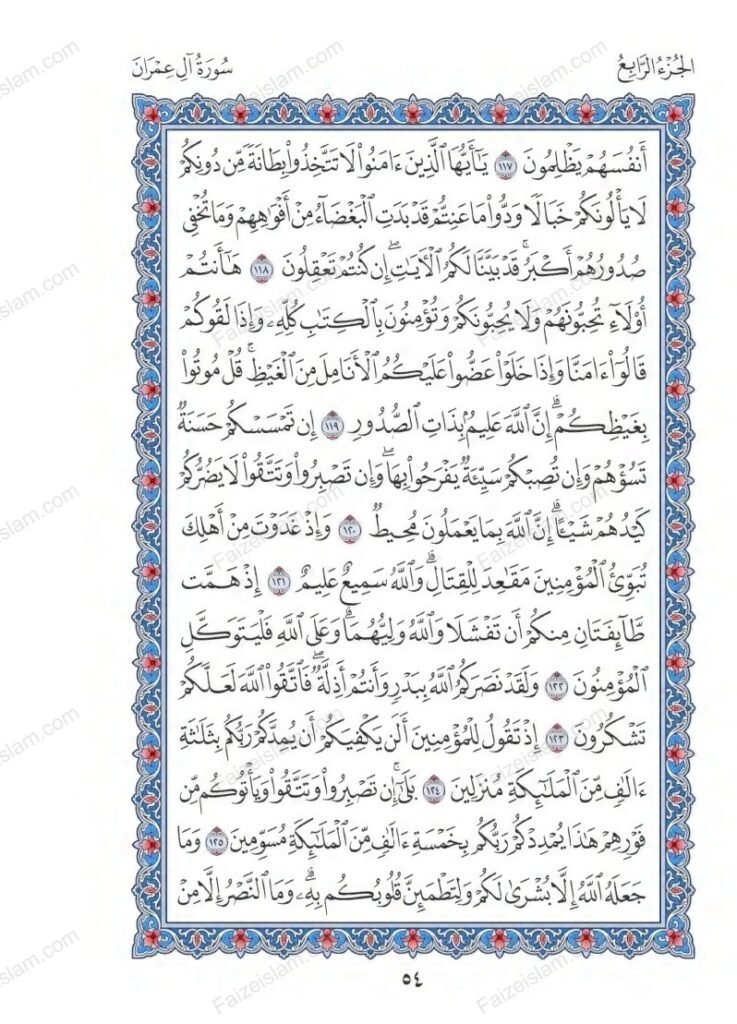 الجُزْءُ الرَّابِعُ
سُورَةُ آلِ عِمْرَانَ
أَنفُسَهُمْ يَظْلِمُونَ ١١٧ يَٰٓأَيُّهَا ٱلَّذِينَ ءَامَنُوا۟ لَا تَتَّخِذُوا۟ بِطَانَةً مِّن دُونِكُمْ
لَا يَأْلُونَكُمْ خَبَالًا وَدُّوا۟ مَا عَنِتُّمْ قَدْ بَدَتِ ٱلْبَغْضَآءُ مِنْ أَفْوَٰهِهِمْ وَمَا تُخْفِى
صُدُورُهُمْ أَكْبَرُ ۚ قَدْ بَيَّنَّا لَكُمُ ٱلْءَايَٰتِ ۖ إِن كُنتُمْ تَعْقِلُونَ ١١٨ هَٰٓأَنتُمْ
أُو۟لَآءِ تُحِبُّونَهُمْ وَلَا يُحِبُّونَكُمْ وَتُؤْمِنُونَ بِٱلْكِتَٰبِ كُلِّهِۦ وَإِذَا لَقُوكُمْ
قَالُوٓا۟ ءَامَنَّا وَإِذَا خَلَوْا۟ عَضُّوا۟ عَلَيْكُمُ ٱلْأَنَامِلَ مِنَ ٱلْغَيْظِ ۚ قُلْ مُوتُوا۟
بِغَيْظِكُمْ ۗ إِنَّ ٱللَّهَ عَلِيمٌۢ بِذَاتِ ٱلصُّدُورِ ١١٩ إِن تَمْسَسْكُمْ حَسَنَةٌ
تَسُؤْهُمْ وَإِن تُصِبْكُمْ سَيِّئَةٌ يَفْرَحُوا۟ بِهَا ۖ وَإِن تَصْبِرُوا۟ وَتَتَّقُوا۟ لَا يَضُرُّكُمْ
كَيْدُهُمْ شَيْـًٔا ۗ إِنَّ ٱللَّهَ بِمَا يَعْمَلُونَ مُحِيطٌ ١٢٠ وَإِذْ غَدَوْتَ مِنْ أَهْلِكَ
تُبَوِّئُ ٱلْمُؤْمِنِينَ مَقَٰعِدَ لِلْقِتَالِ ۗ وَٱللَّهُ سَمِيعٌ عَلِيمٌ ١٢١ إِذْ هَمَّت
طَّآئِفَتَانِ مِنكُمْ أَن تَفْشَلَا وَٱللَّهُ وَلِيُّهُمَا ۗ وَعَلَى ٱللَّهِ فَلْيَتَوَكَّلِ
ٱلْمُؤْمِنُونَ ١٢٢ وَلَقَدْ نَصَرَكُمُ ٱللَّهُ بِبَدْرٍ وَأَنتُمْ أَذِلَّةٌ ۖ فَٱتَّقُوا۟ ٱللَّهَ لَعَلَّكُمْ
تَشْكُرُونَ ١٢٣ إِذْ تَقُولُ لِلْمُؤْمِنِينَ أَلَن يَكْفِيَكُمْ أَن يُمِدَّكُمْ رَبُّكُم بِثَلَٰثَةِ
ءَالَٰفٍ مِّنَ ٱلْمَلَٰٓئِكَةِ مُنزَلِينَ ١٢٤ بَلَىٰٓ ۚ إِن تَصْبِرُوا۟ وَتَتَّقُوا۟ وَيَأْتُوكُم مِّن
فَوْرِهِمْ هَٰذَا يُمْدِدْكُمْ رَبُّكُم بِخَمْسَةِ ءَالَٰفٍ مِّنَ ٱلْمَلَٰٓئِكَةِ مُسَوِّمِينَ ١٢٥ وَمَا
جَعَلَهُ ٱللَّهُ إِلَّا بُشْرَىٰ لَكُمْ وَلِتَطْمَئِنَّ قُلُوبُكُم بِهِۦ ۗ وَمَا ٱلنَّصْرُ إِلَّا مِنْ
٥٤
Faizeislam.com